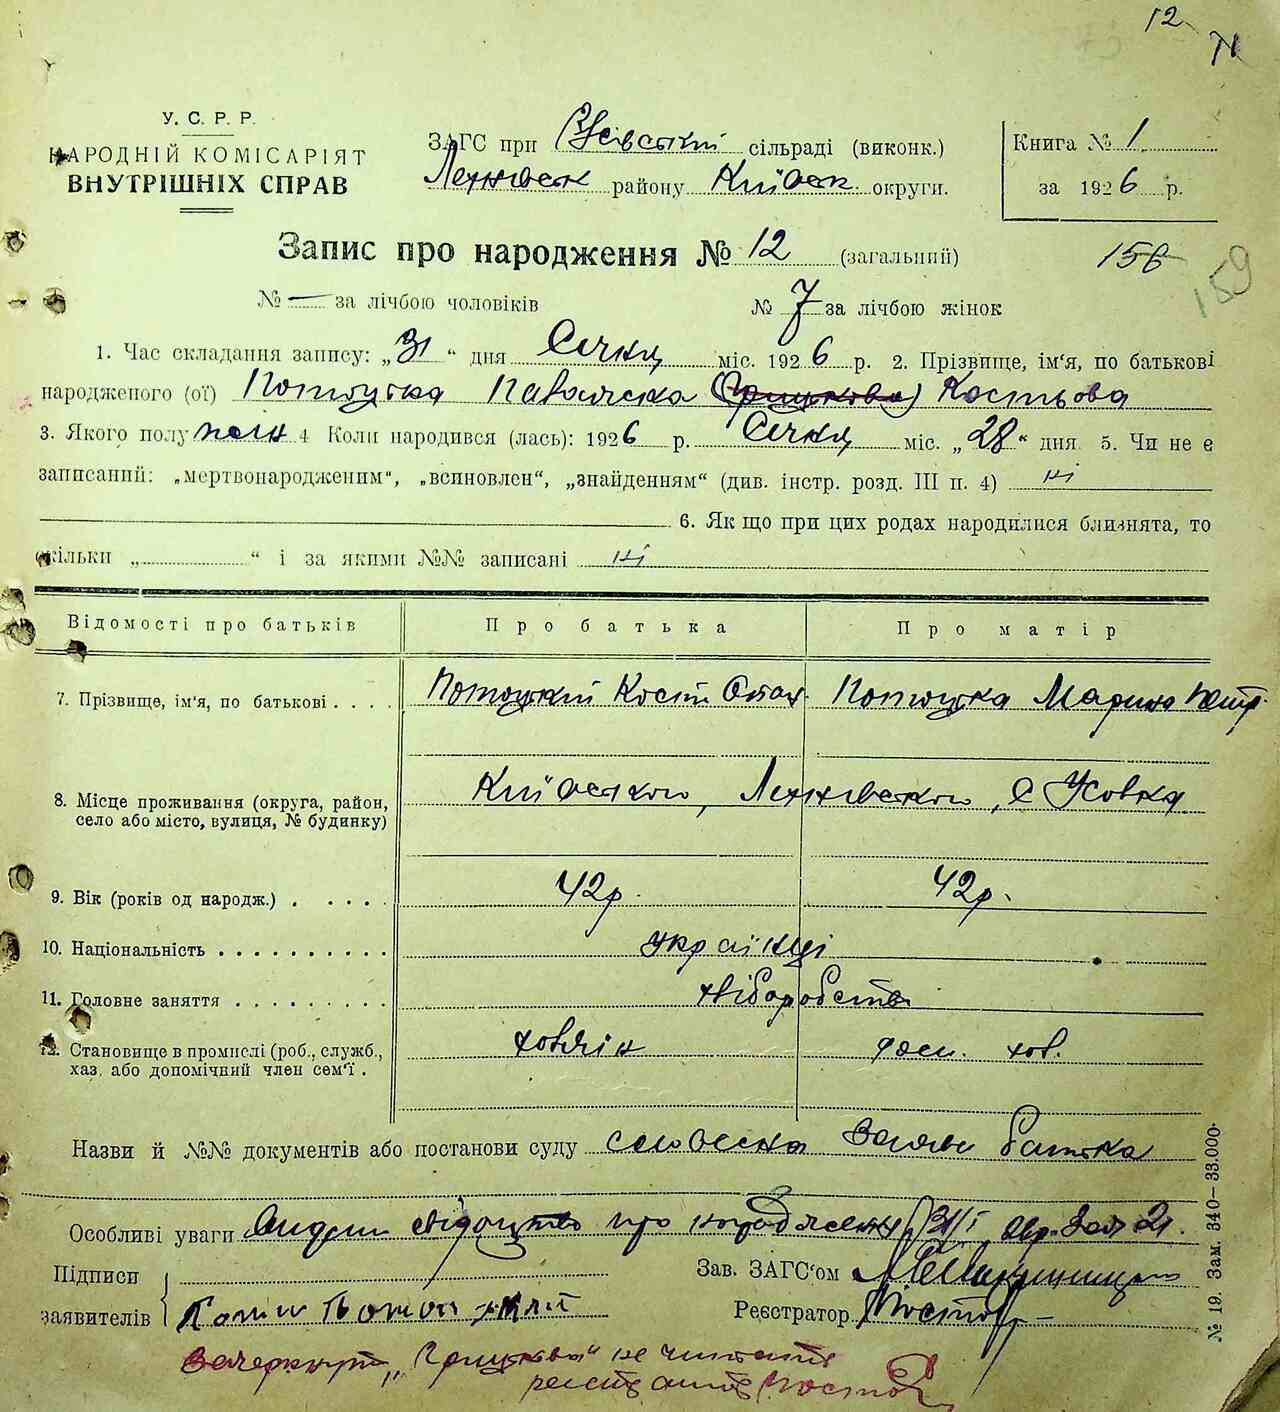 12
У. С. Р. Р.
НАРОДНІЙ КОМІСАРІЯТ
ВНУТРІШНІХ СПРАВ
ЗАГС при сільраді (виконк.)
району Київськ. округи.
Книга № 1
за 1926 р.
Запис про народження № 12 (загальний)
156
159
№ — за лічбою чоловіків № 7 за лічбою жінок
1. Час складання запису: „31“ дня Січня міс. 1926 р. 2. Прізвище, ім'я, по батькові
народженого (ої) Потоцька Павлина (Грицькова) Костьова
3. Якого полу жін 4 Коли народився (лась): 1926 р. Січня міс. „28“ дня. 5. Чи не є
записаний: „мертвонародженим“, „всиновлен“, „знайденням“ (див. інстр. розд. III п. 4) ні
6. Як що при цих родах народилися близнята, то
скільки „ “ і за якими №№ записані ні
Відомості про батьків Про батька Про матір
7. Прізвище, ім'я, по батькові . . . . Потоцький Кость Потоцька Марина
8. Місце проживання (округа, район,
село або місто, вулиця, № будинку)
Київського, с Усовка
9. Вік (років од народж.) . . . . . 42р. 42р.
10. Національність . . . . . . . . . . українці
11. Головне заняття . . . . . . . . . хліборобство
12. Становище в промислі (роб., служб.,
хаз. або допомічний член сем'ї .
хазяїн
Назви й №№ документів або постанови суду словесна заява батька
Особливі уваги Видано свідоцтво про народження 31/I
Підписи
заявителів
Зав. ЗАГС'ом
Реєстратор
Зачеркнуте „Грицькова“ не читать
№ 19. Зам. 340—33.000.